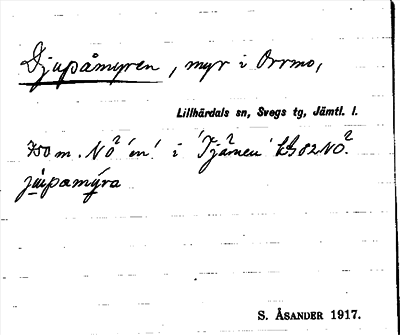 Djupåmyren, myr i Orrmo,
Lillhärdals sn, Svegs tg, Jämtl. l.
750 m. NÖ 'en' i 'Tjärnen' 82 NÖ.
S. ÅSANDER 1917.